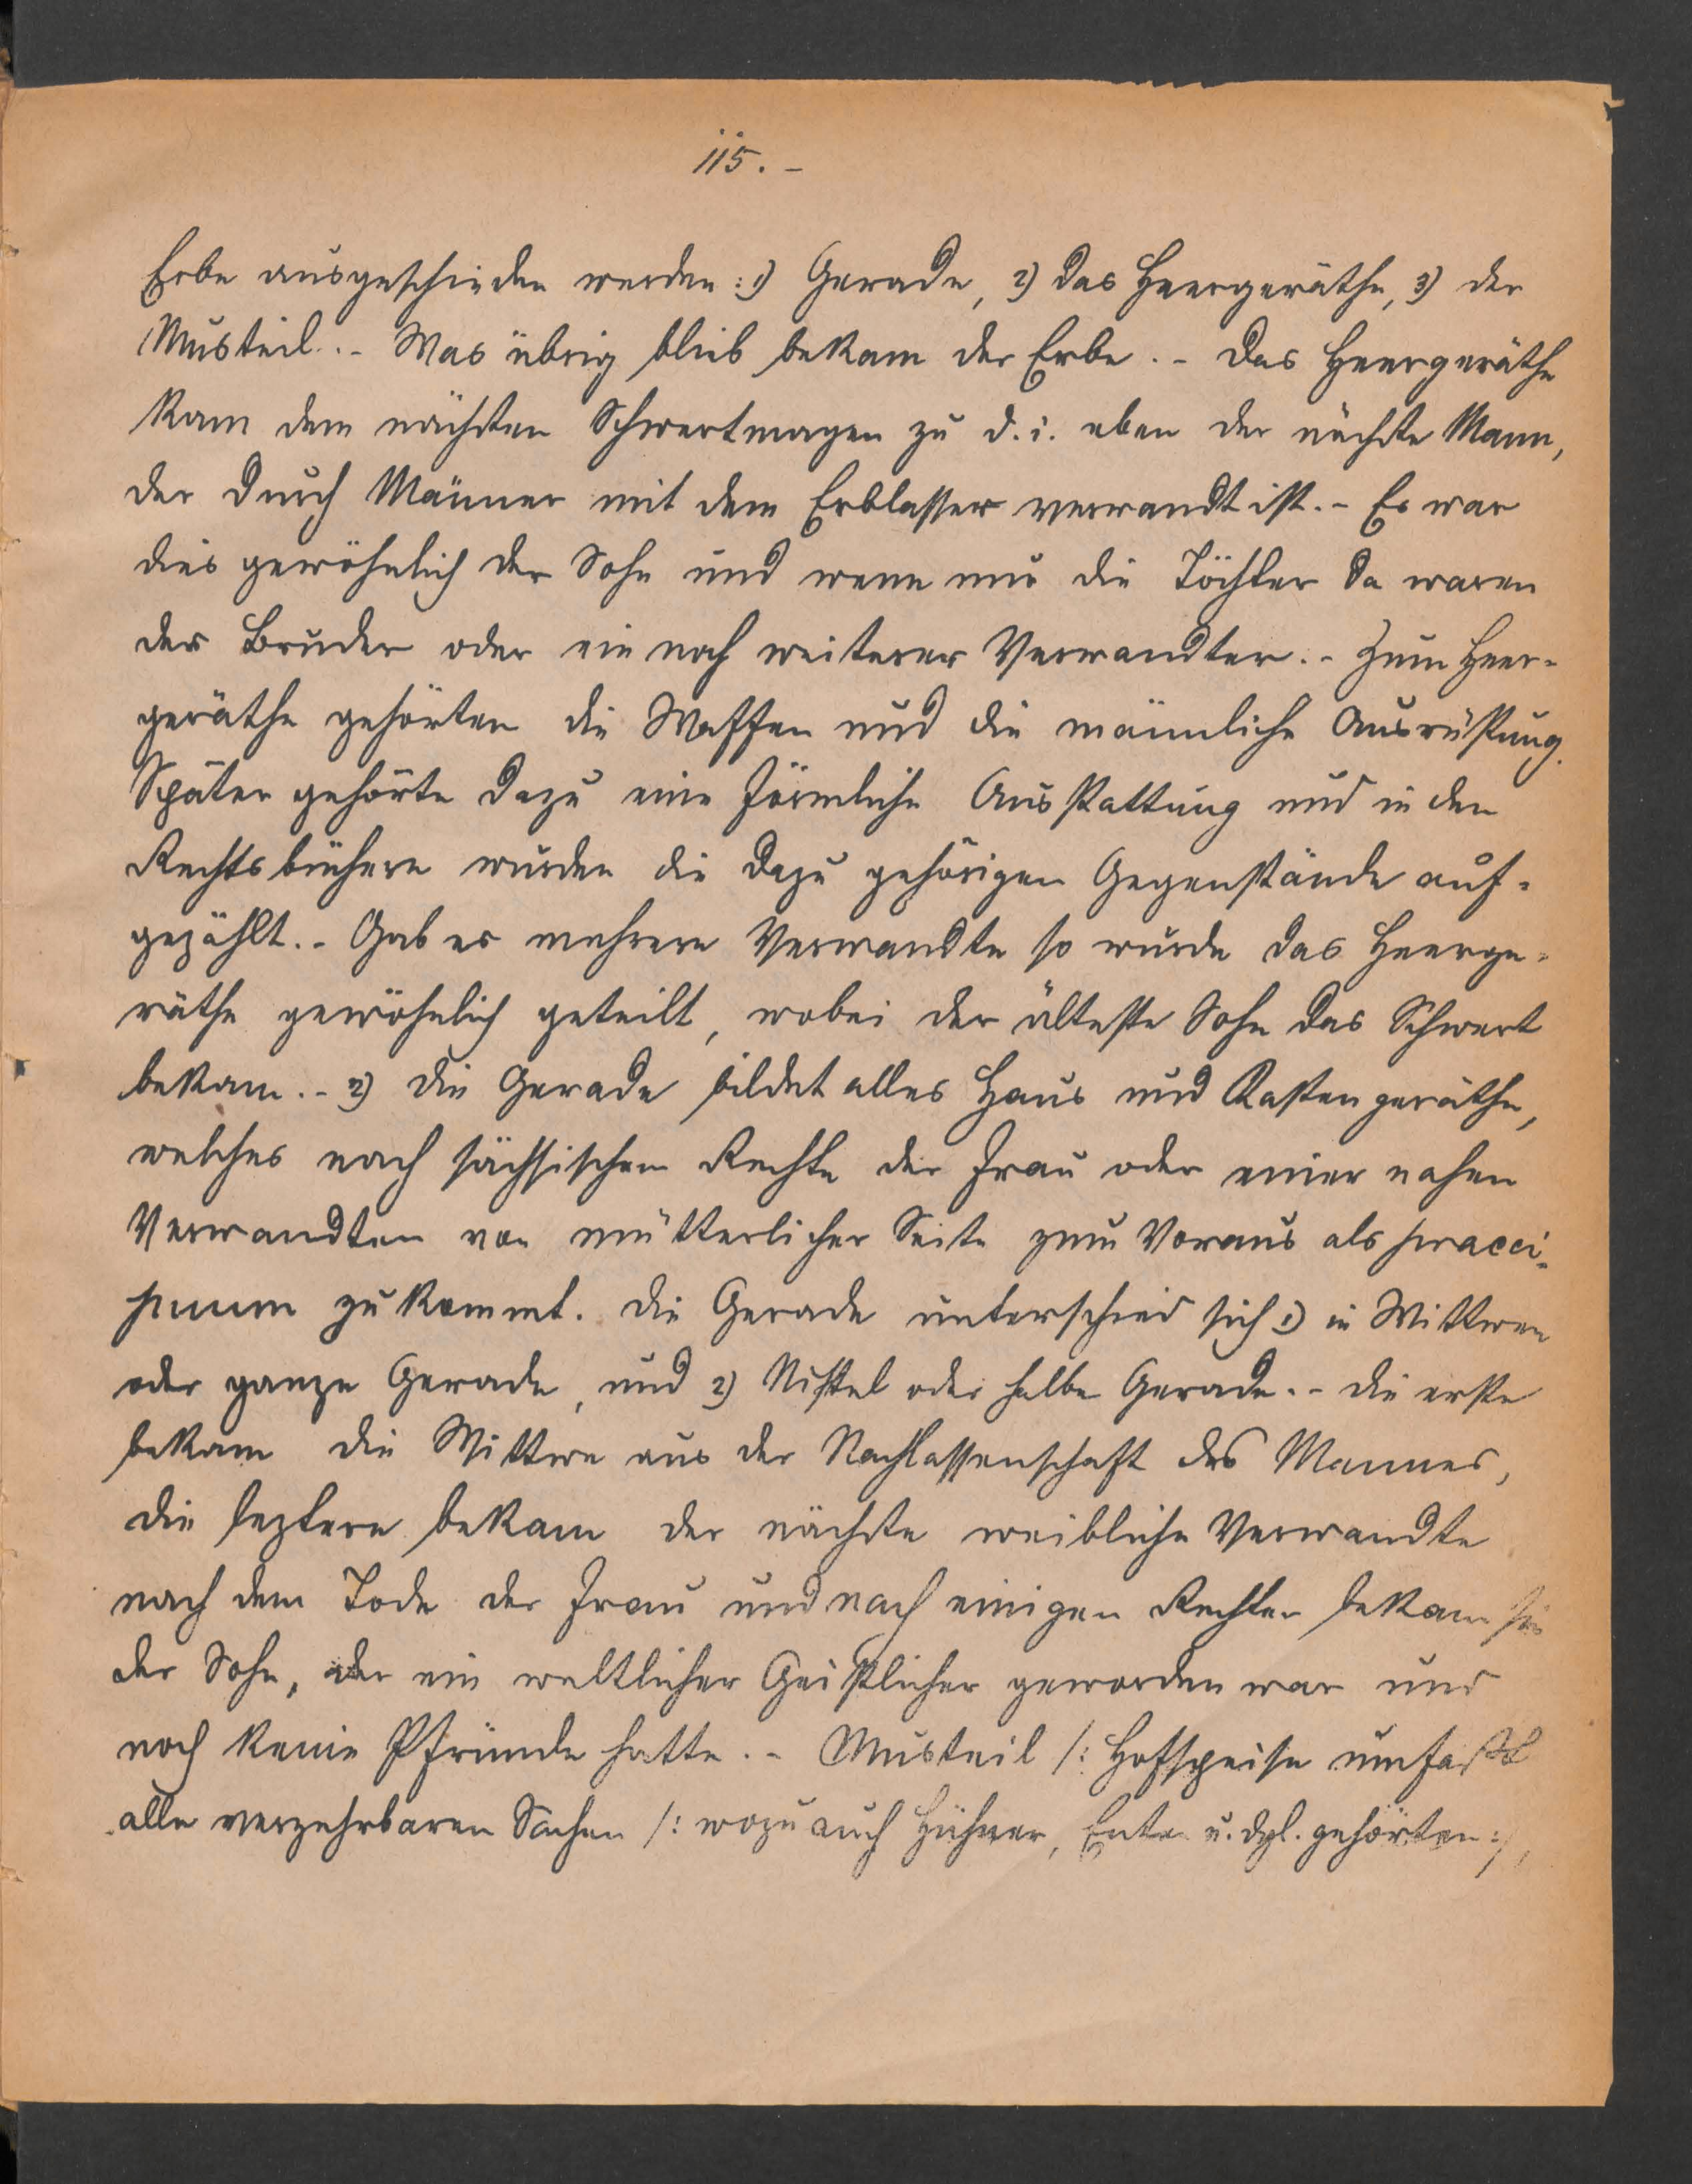 115. -
Erbe ausgeschieden werden: 1) Gerade, 2) das Heergeräthe, 3) der
Musteil. - Was übrig blieb bekam der Erbe. - Das Heergeräthe
kam dem nächsten Schwertmagen zu d. i. eben der nächste Mann,
der durch Männer mit dem Erblasser verwandt ist. - Es war
dies gewöhnlich der Sohn und wenn nur die Töchter da waren
der Bruder oder ein noch weiterer Verwandter. - Zum Heer-
geräthe gehörten die Waffen und die männliche Ausrüstung.
Später gehörte dazu eine förmliche Ausstattung und in den
Rechtsbüchern wurden die dazu gehörigen Gegenstände auf-
gezählt. - Gab es mehrere Verwandte so wurde das Heerge-
räthe gewöhnlich geteilt, wobei der älteste Sohn das Schwert
bekam. - 2) Die Gerade bildet alles Haus und Kastengeräthe,
welches nach sächsischem Rechte der Frau oder einer nahen
Verwandten von mütterlicher Seite zum Voraus als praeci-
puum zukommt. Die Gerade unterschied sich 1) in Wittwen
oder ganze Gerade, und 2) Niftel oder halbe Gerade. - Die erste
bekam die Wittwe aus der Nachlassenschaft des Mannes,
die leztere bekam der nächste weibliche Verwandte
nach dem Tode der Frau und nach einigen Rechten bekam sie
der Sohn, der ein weltlicher Geistlicher geworden war und
noch keine Pfründe hatte. - Musteil /: Hofspeise umfaßt
alle verzehrbaren Sachen /: wozu auch Hühner, Ente u. dgl. gehörten :/,